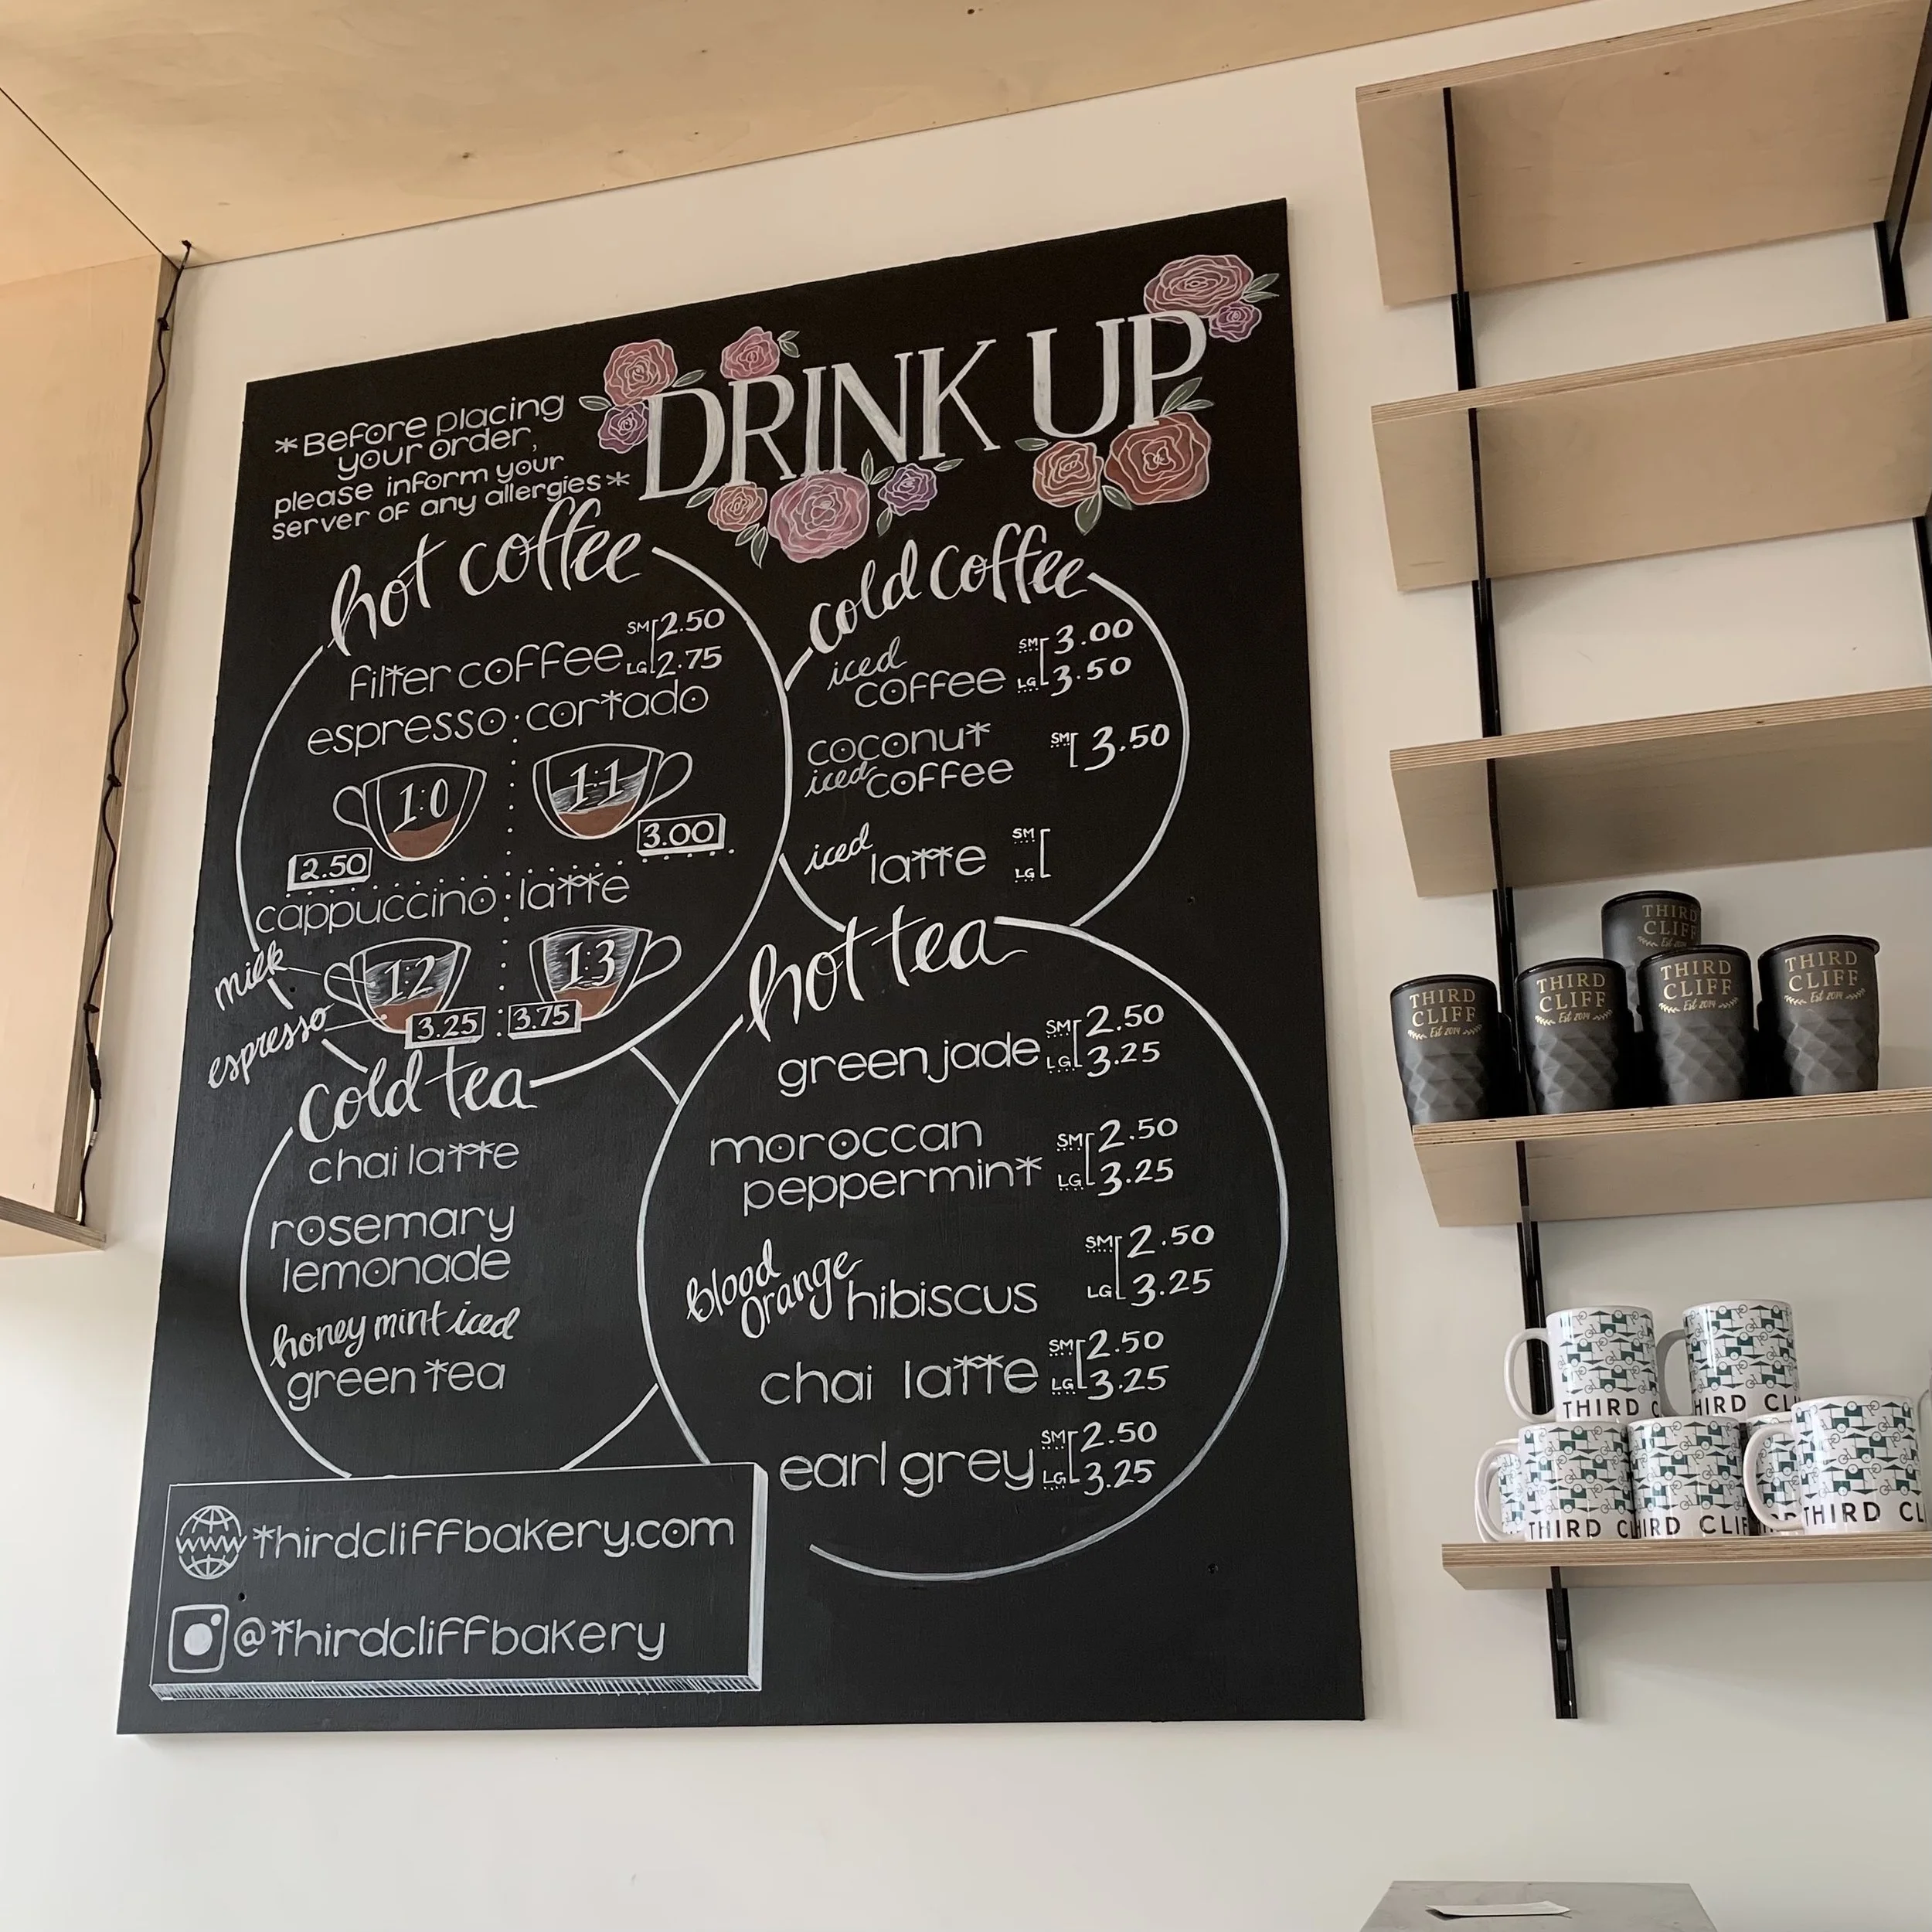 *Before placing
your order,
please inform your
server of any allergies*
DRINK UP
hot coffee
filter coffee SM 2.50
LG 2.75
espresso : cortado
1:0
1:1
2.50
3.00
cappuccino : latte
milk
1:2
1:3
espresso
3.25
3.75
cold coffee
iced
coffee SM 3.00
LG 3.50
coconut
iced coffee SM 3.50
iced latte SM
LG
cold tea
chai latte
rosemary
lemonade
honey mint iced
green tea
hot tea
green jade SM 2.50
LG 3.25
moroccan
peppermint SM 2.50
LG 3.25
blood
orange hibiscus SM 2.50
LG 3.25
chai latte SM 2.50
LG 3.25
earl grey SM 2.50
LG 3.25
www thirdcliffbakery.com
@thirdcliffbakery
THIRD
CLIFF
Est 2014
THIRD
CLIFF
Est 2014
THIRD
CLIFF
Est 2014
THIRD
CLIFF
Est 2014
THIRD
CLIFF
Est 2014
THIRD C
HIRD CLI
THIRD CL
HIRD CLIF
THIRD CL